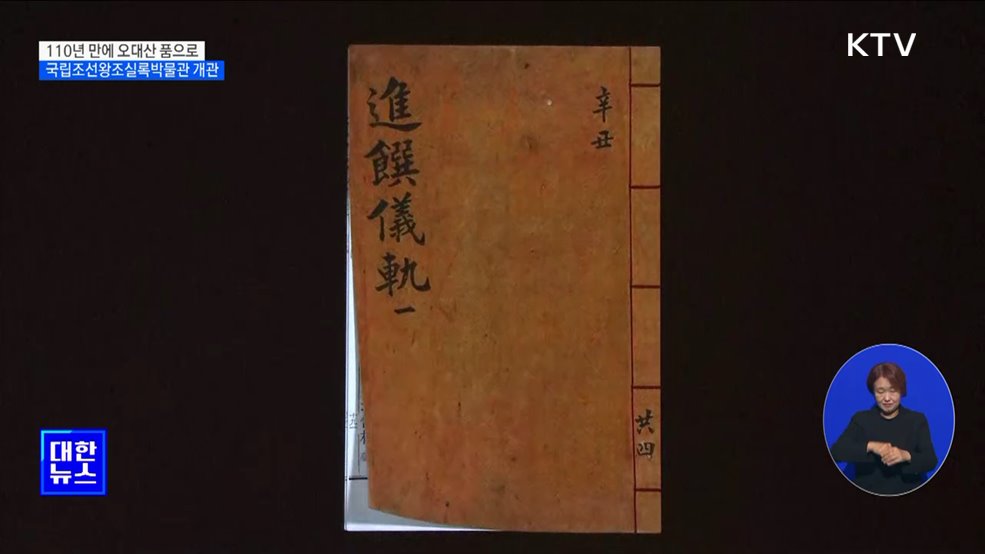 110년 만에 오대산 품으로
국립조선왕조실록박물관 개관
KTV
辛丑
進饌儀軌一
共四
대한
뉴스